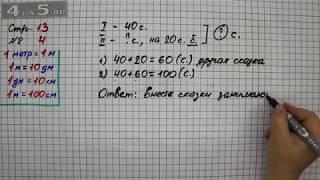 4 а П 5 ны
Стр. 13
№ 4
1 метр = 1 м
1 м = 10 дм
1 дм = 10 см
1 м = 100 см
I - 40 с.
II - ? с., на 20 с. б.
? с.
1) 40+20=60 (с.) другая сказка
2) 40+60=100 (с.)
Ответ: вместе сказки занимаю